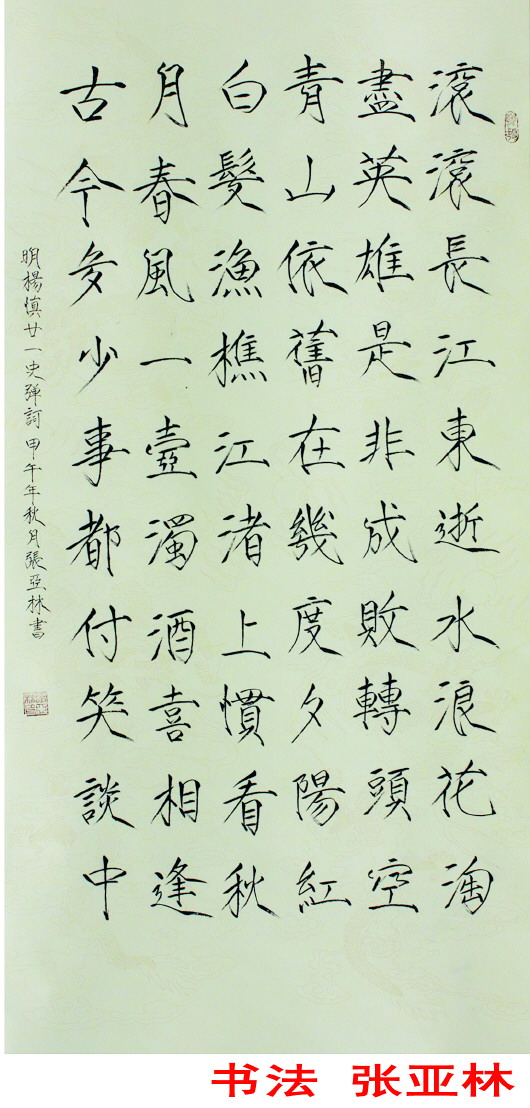 滾滾長江東逝水浪花淘
盡英雄是非成敗轉頭空
青山依舊在幾度夕陽紅
白髮漁樵江渚上慣看秋
月春風一壺濁酒喜相逢
古今多少事都付笑談中
明楊慎廿一史彈詞甲午年秋月張亞林書
书法 张亚林